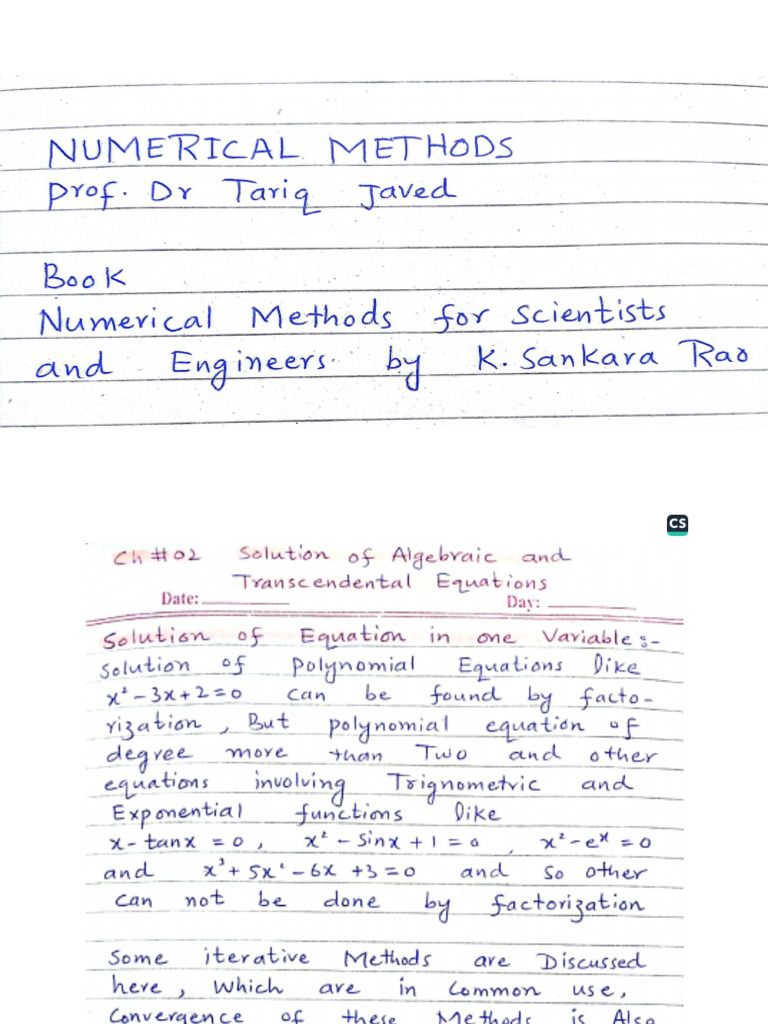 NUMERICAL METHODS
Prof. Dr Tariq Javed
Book
Numerical Methods for Scientists
and Engineers by K. Sankara Rao
CS
Ch # 02 Solution of Algebraic and
Transcendental Equations
Date: Day:
Solution of Equation in one Variable:-
Solution of Polynomial Equations like
x² - 3x + 2 = 0 can be found by facto-
rization, But polynomial equation of
degree more than Two and other
equations involving Trignometric and
Exponential functions like
x - tanx = 0, x² - Sinx + 1 = 0, x² - eˣ = 0
and x³ + 5x² - 6x + 3 = 0 and so other
can not be done by factorization
Some iterative Methods are Discussed
here, Which are in Common use,
Convergence of these Methods is Also